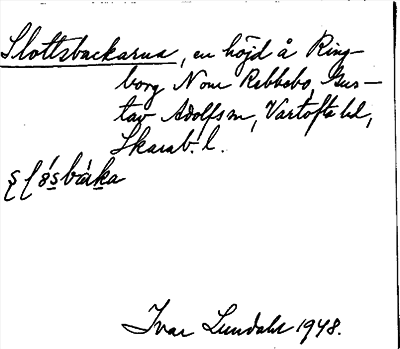 Slottsbackarna, en höjd å Ring-
borg Norr Rebbebo, Gus-
tav Adolfs sn, Vartofta hd,
Skarab. l.
Ivar Lundahl 1948.